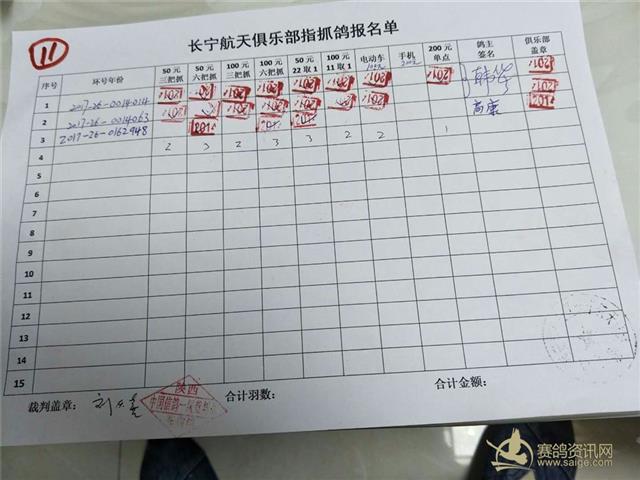 11
长宁航天俱乐部指抓鸽报名单
序号 环号年份 50元三把抓 50元六把抓 100元三把抓 100元六把抓 50元22取1 100元11取1 电动车 手机 200元单点 鸽主签名 俱乐部盖章
1 2017-26-0014014 102 102 102 102 102 102 102 102
2 2017-26-0014063 102 102 102 102 102 102 102
3 2017-26-0162948 201 201 201 高康 201
2 3 2 3 3 2 2 1
4
5
6
7
8
9
10
11
12
13
14
15
裁判盖章: 陕西 合计羽数: 合计金额:
赛鸽资讯网
www.saige.com